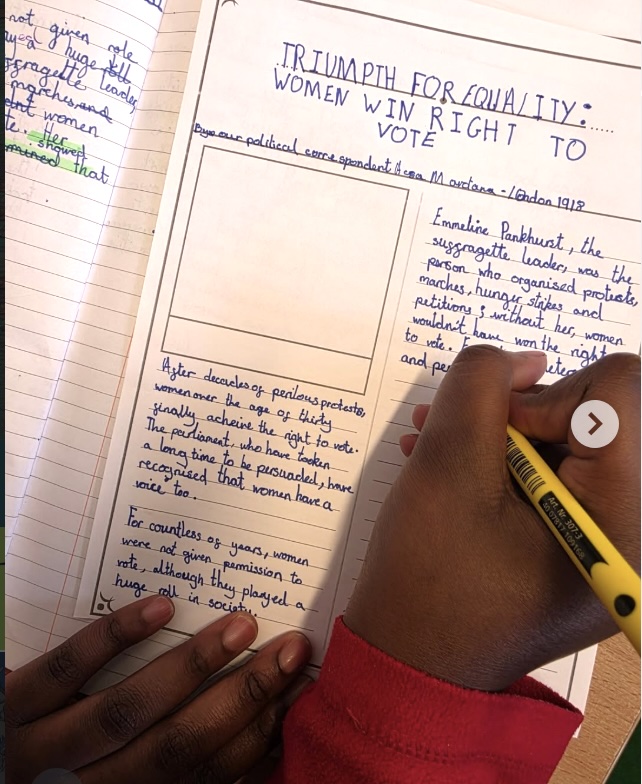 not given role
huge roll
suffragette leader,
marches, and
women
te. Her
showed
mined that
TRIUMPTH FOR EQUALITY:.....
WOMEN WIN RIGHT TO
VOTE
By our political correspondent - London 1918
After decades of perilous protests,
women over the age of thirty
finally acheive the right to vote.
The parliament, who have tooken
a long time to be persuaded, have
recognised that women have a
voice too.
For countless of years, women
were not given permission to
vote, although they played a
huge roll in society.
Emmeline Pankhurst, the
suffragette leader, was the
person who organised protests,
marches, hunger strikes and
petitions ; without her, women
wouldn't have won the right
to vote.
and
Art. Nr. 307.3